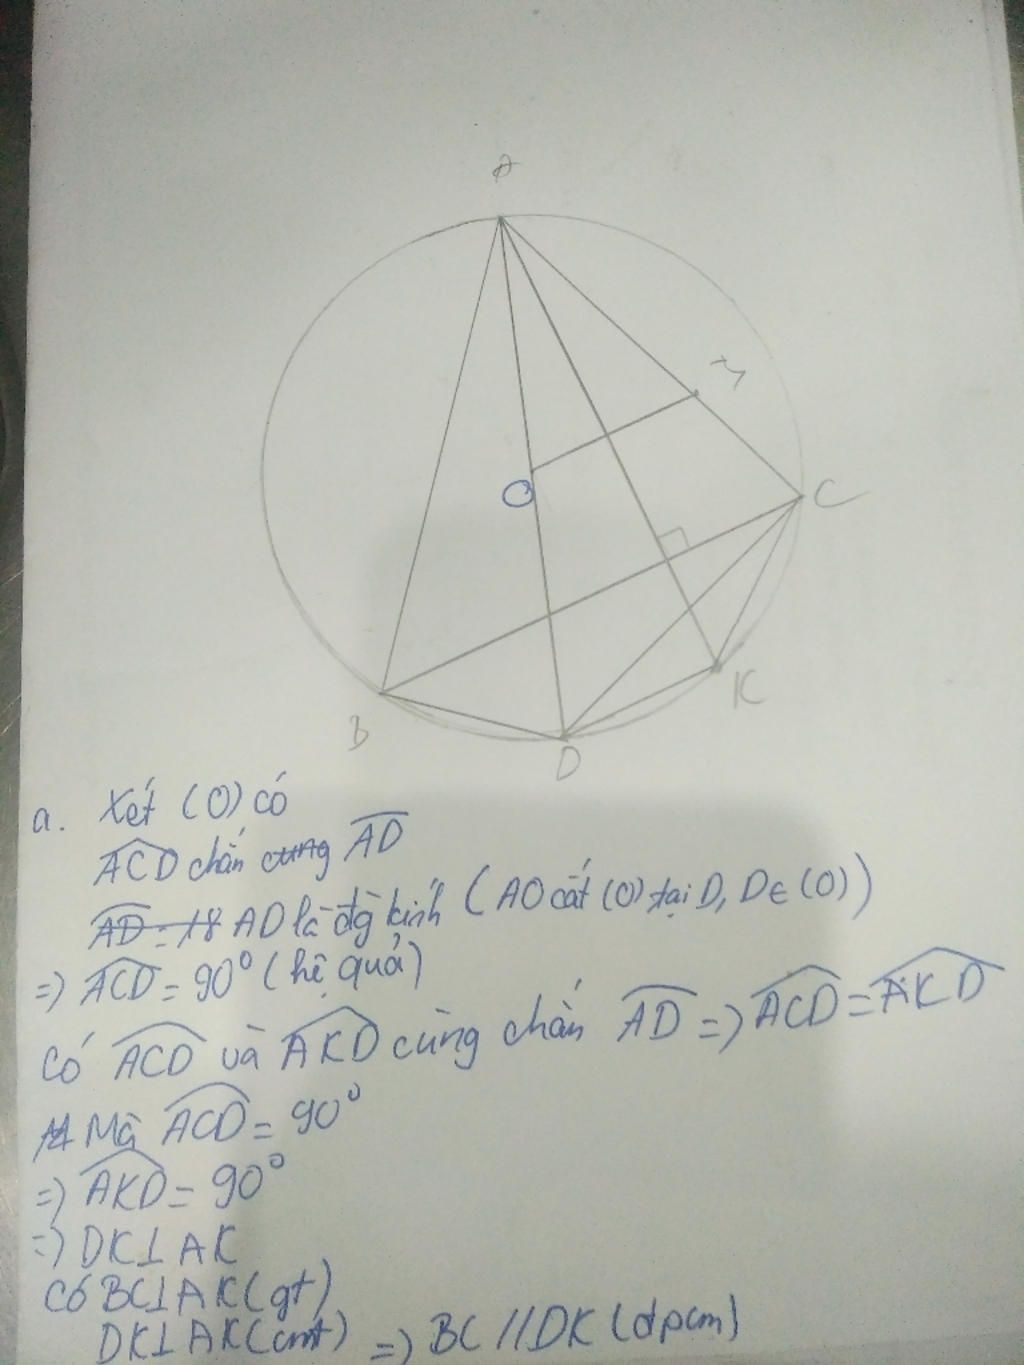 A
M
O
C
K
B
D
a. Xét (O) có
ACD chắn cung AD
AD = 18 AD là đg kính (AO cắt (O) tại D, D∈(O))
=> ACD = 90° (hệ quả)
Có ACD và AKD cùng chắn AD => ACD = AKD
Mà ACD = 90°
=> AKD = 90°
=> DK⊥AK
Có BC⊥AK (gt)
DK⊥AK (cmt) => BC // DK (đpcm)